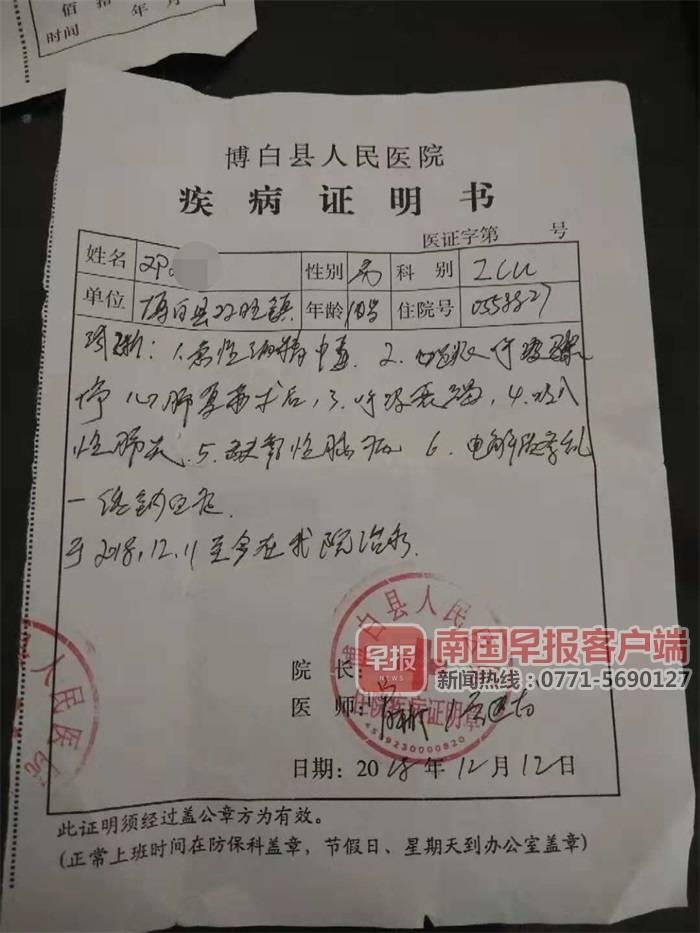 佰 拾
年 月
时间
博白县人民医院
疾病证明书
医证字第 号
姓名 邓 性别 男 科别 ICU
单位 博白县双旺镇 年龄 住院号 0553827
诊断：1.急性酒精中毒 2. 呼吸骤
停 心肺复苏术后，3.呼吸衰竭，4.吸入
性肺炎 5.缺氧性脑病 6.电解质紊乱
一低钠血症
于2018.12.11至今在我院治疗.
博白县人民
早报
NEWS
南国早报客户端
新闻热线：0771-5690127
院长
医师：
疾病证明章
4509230000820
人民医院
日期：2018年12月12日
此证明须经过盖公章方为有效。
(正常上班时间在防保科盖章，节假日、星期天到办公室盖章)